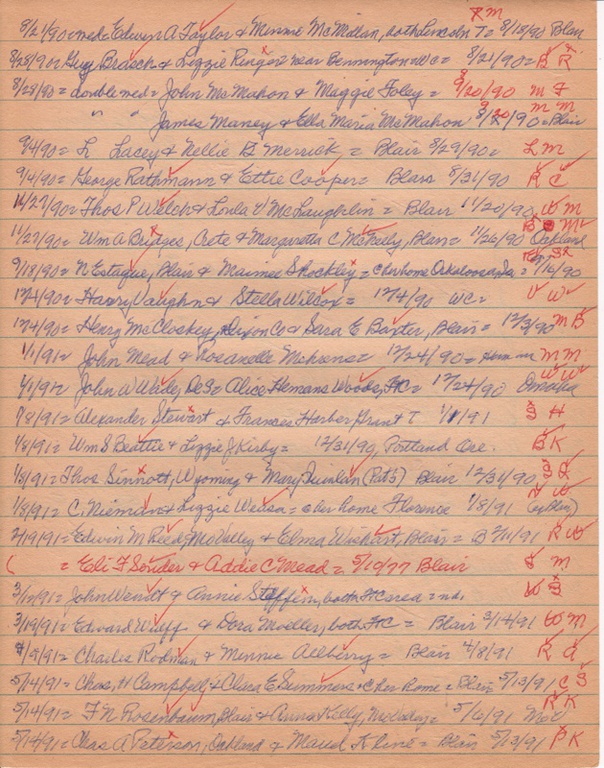 T M
8/21/90= wed= Edwin A Taylor & Minnie McMillan, both Lincoln T= 8/18/90 Blair
8/28/90= Guy Braach & Lizzie Ringor= near Bennington= WC= 8/21/90= B R
8/28/90= double wed= John McMahon & Maggie Foley= 8/20/90 M F
" " James Maney & Ella Maria McMahon 8/20/90= Blair M M
9/4/90= L Lacey & Nellie G Merrick= Blair 8/29/90= L M
9/4/90= George Rathmann & Ettie Cooper= Blair 8/31/90 R C
11/27/90= Thos P Welch & Loula V McLaughlin= Blair 11/20/90 W M
11/27/90= Wm A Bridges, Crete & Margaretta C McNeely, Blair= 11/26/90 Oakland B M
9/18/90= N Estaque, Blair & Maimee Shockley= @ her home Oskaloosa Ia= 9/16/90 E S
12/4/90= Harry Vaughn & Stella Wilcox= 12/4/90 WC= V W
12/4/90= Henry McCloskey, Dixon Co & Sara E Baxter, Blair= 12/3/90 M B
1/1/91= John Mead & Rosanelle Mehrens= 12/24/90= M M
1/1/91= John W Wade, DeS= Alice Hemans Woods, HC= 12/24/90 Omaha W W
1/8/91= Alexander Stewart & Frances Harber Grant T 1/1/91 S H
1/8/91= Wm S Beattie & Lizzie J Kirby= 12/31/90, Portland Ore. B K
1/8/91= Thos Sinnott, Wyoming & Mary Quinlan (Pat's) Blair 12/31/90 S Q
1/8/91= C. Nieman & Lizzie Weasa= @ her home Florence 1/8/91 N W
2/19/91= Edwin M Reed, Mo Valley & Elma Wishart, Blair= B 2/11/91 R W
( = Eli F Souder & Addie C Mead= 5/10/77 Blair S M
3/12/91= John Wendt & Annie Steffen, both HC area= nd. W S
3/19/91= Edward Wulff & Dora Moeller, both HC= Blair 3/14/91 W M
4/9/91= Charles Rodman & Minnie Allberry= Blair 4/8/91 R A
5/14/91= Chas, H Campbell & Clara E Summers= @ her home= Blair 5/13/91 C S
5/14/91= F N Rosenbaum, Blair & Anna Kelly, Mo Valley= 5/6/91 Mo V R K
5/14/91= Chas A Peterson, Oakland & Maud Kline= Blair 5/13/91 P K